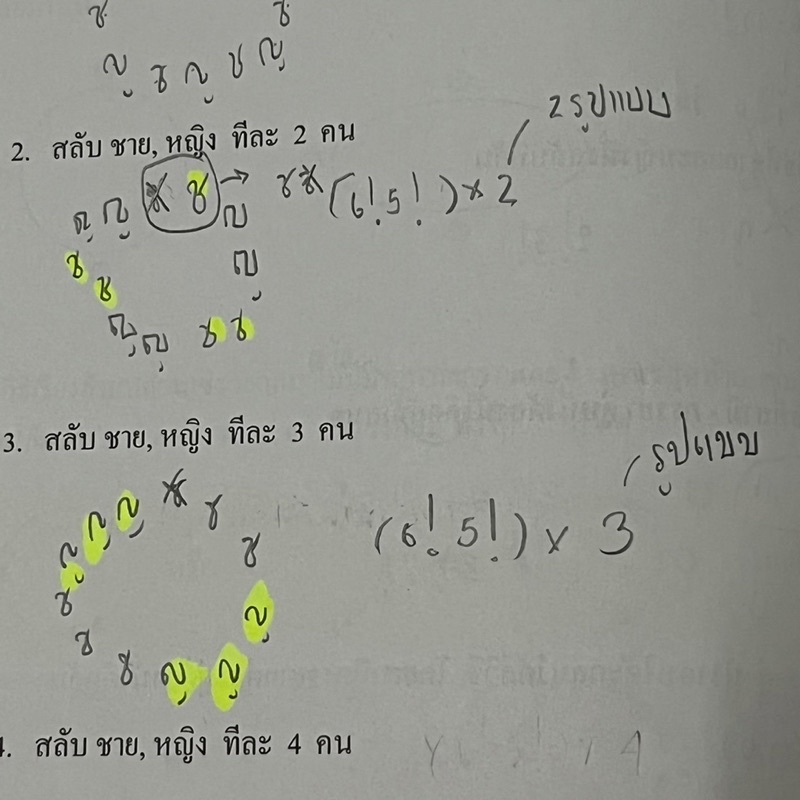 ช ช
ญ ช ญ ช ญ
2 รูปแบบ
2. สลับ ชาย, หญิง ทีละ 2 คน
ญ ญ ช ช → ช ช (6! 5!) x 2
ญ
ช ญ
ช
ญ ญ ช ช
3. สลับ ชาย, หญิง ทีละ 3 คน
รูปแบบ
ญ ญ ญ ช ช (6! 5!) x 3
ช
ช ญ
ช
ช ญ ญ
4. สลับ ชาย, หญิง ทีละ 4 คน